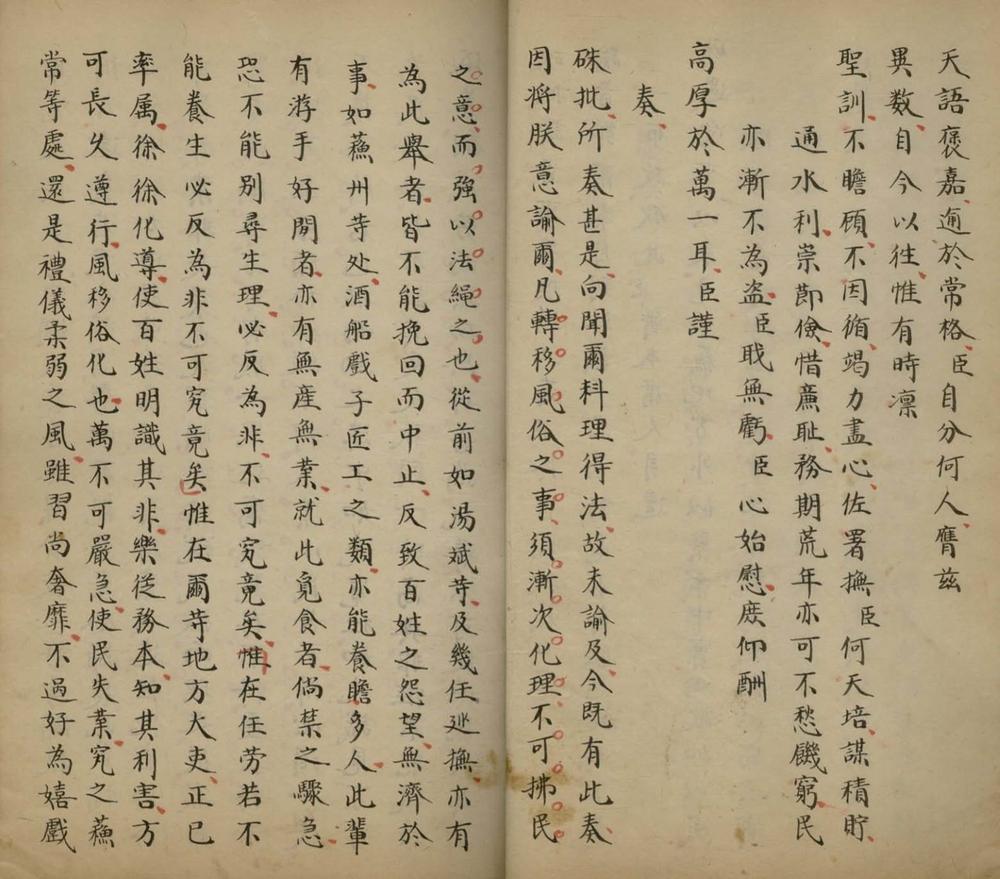 天語褒嘉迥於常格臣自分何人膺茲
異數自今以徃惟有時凜
聖訓不瞻顧不因循竭力盡心佐署撫臣何天培謀積貯
通水利崇節儉惜廉耻務期荒年亦可不愁饑窮民
亦漸不為盜臣職無虧臣心始慰庶仰酬
高厚於萬一耳臣謹
奏
硃批所奏甚是向聞爾料理得法故未諭及今既有此奏
因將朕意諭爾凡轉移風俗之事須漸次化理不可拂民
之意而強以法繩之也從前如湯斌䓁及幾任廵撫亦有
為此舉者皆不能挽回而中止反致百姓之怨望無濟於
事如蘇州䓁处酒船戲子匠工之類亦能養贍多人此輩
有游手好閒者亦有無產無業就此覓食者倘禁之驟急
恐不能別尋生理必反為非不可究竟矣惟在任劳若不
能養生必反為非不可究竟矣惟在爾䓁地方大吏正已
率属徐徐化導使百姓明識其非樂從務本知其利害方
可長久遵行風移俗化也萬不可嚴急使民失業究之蘇
常等處還是禮儀柔弱之風雖習尚奢靡不過好為嬉戲